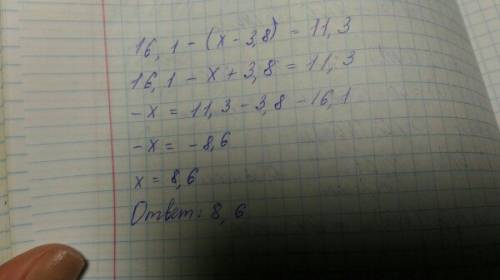 16,1 - (x - 3,8) = 11,3
16,1 - x + 3,8 = 11,3
-x = 11,3 - 3,8 - 16,1
-x = -8,6
x = 8,6
Ответ: 8,6